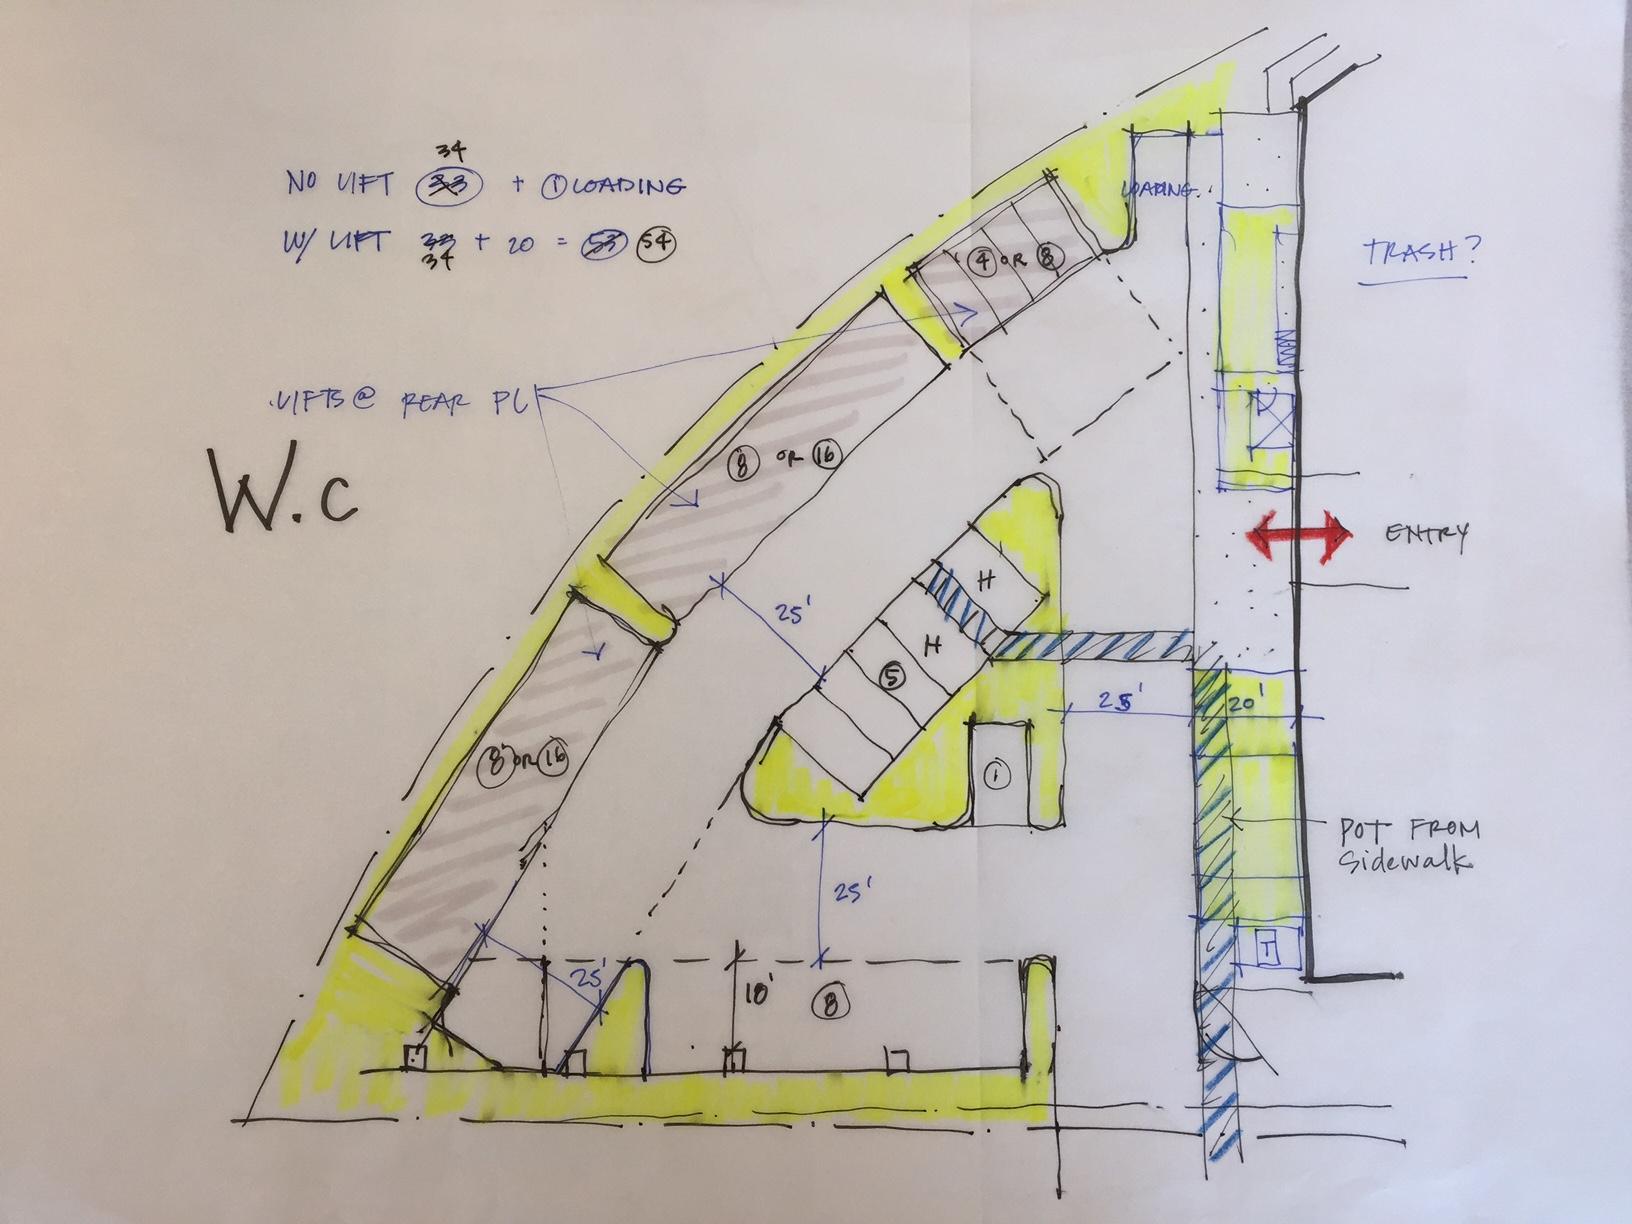 34
NO LIFT 33 + 1 LOADING
W/ LIFT 33 + 20 = 53 54
34
LOADING
TRASH?
4 OR 8
LIFTS @ REAR PL
8 OR 16
W.C
ENTRY
H
25'
H
5
25'
20'
8 OR 16
1
POT FROM
Sidewalk
25'
25'
18'
8
T